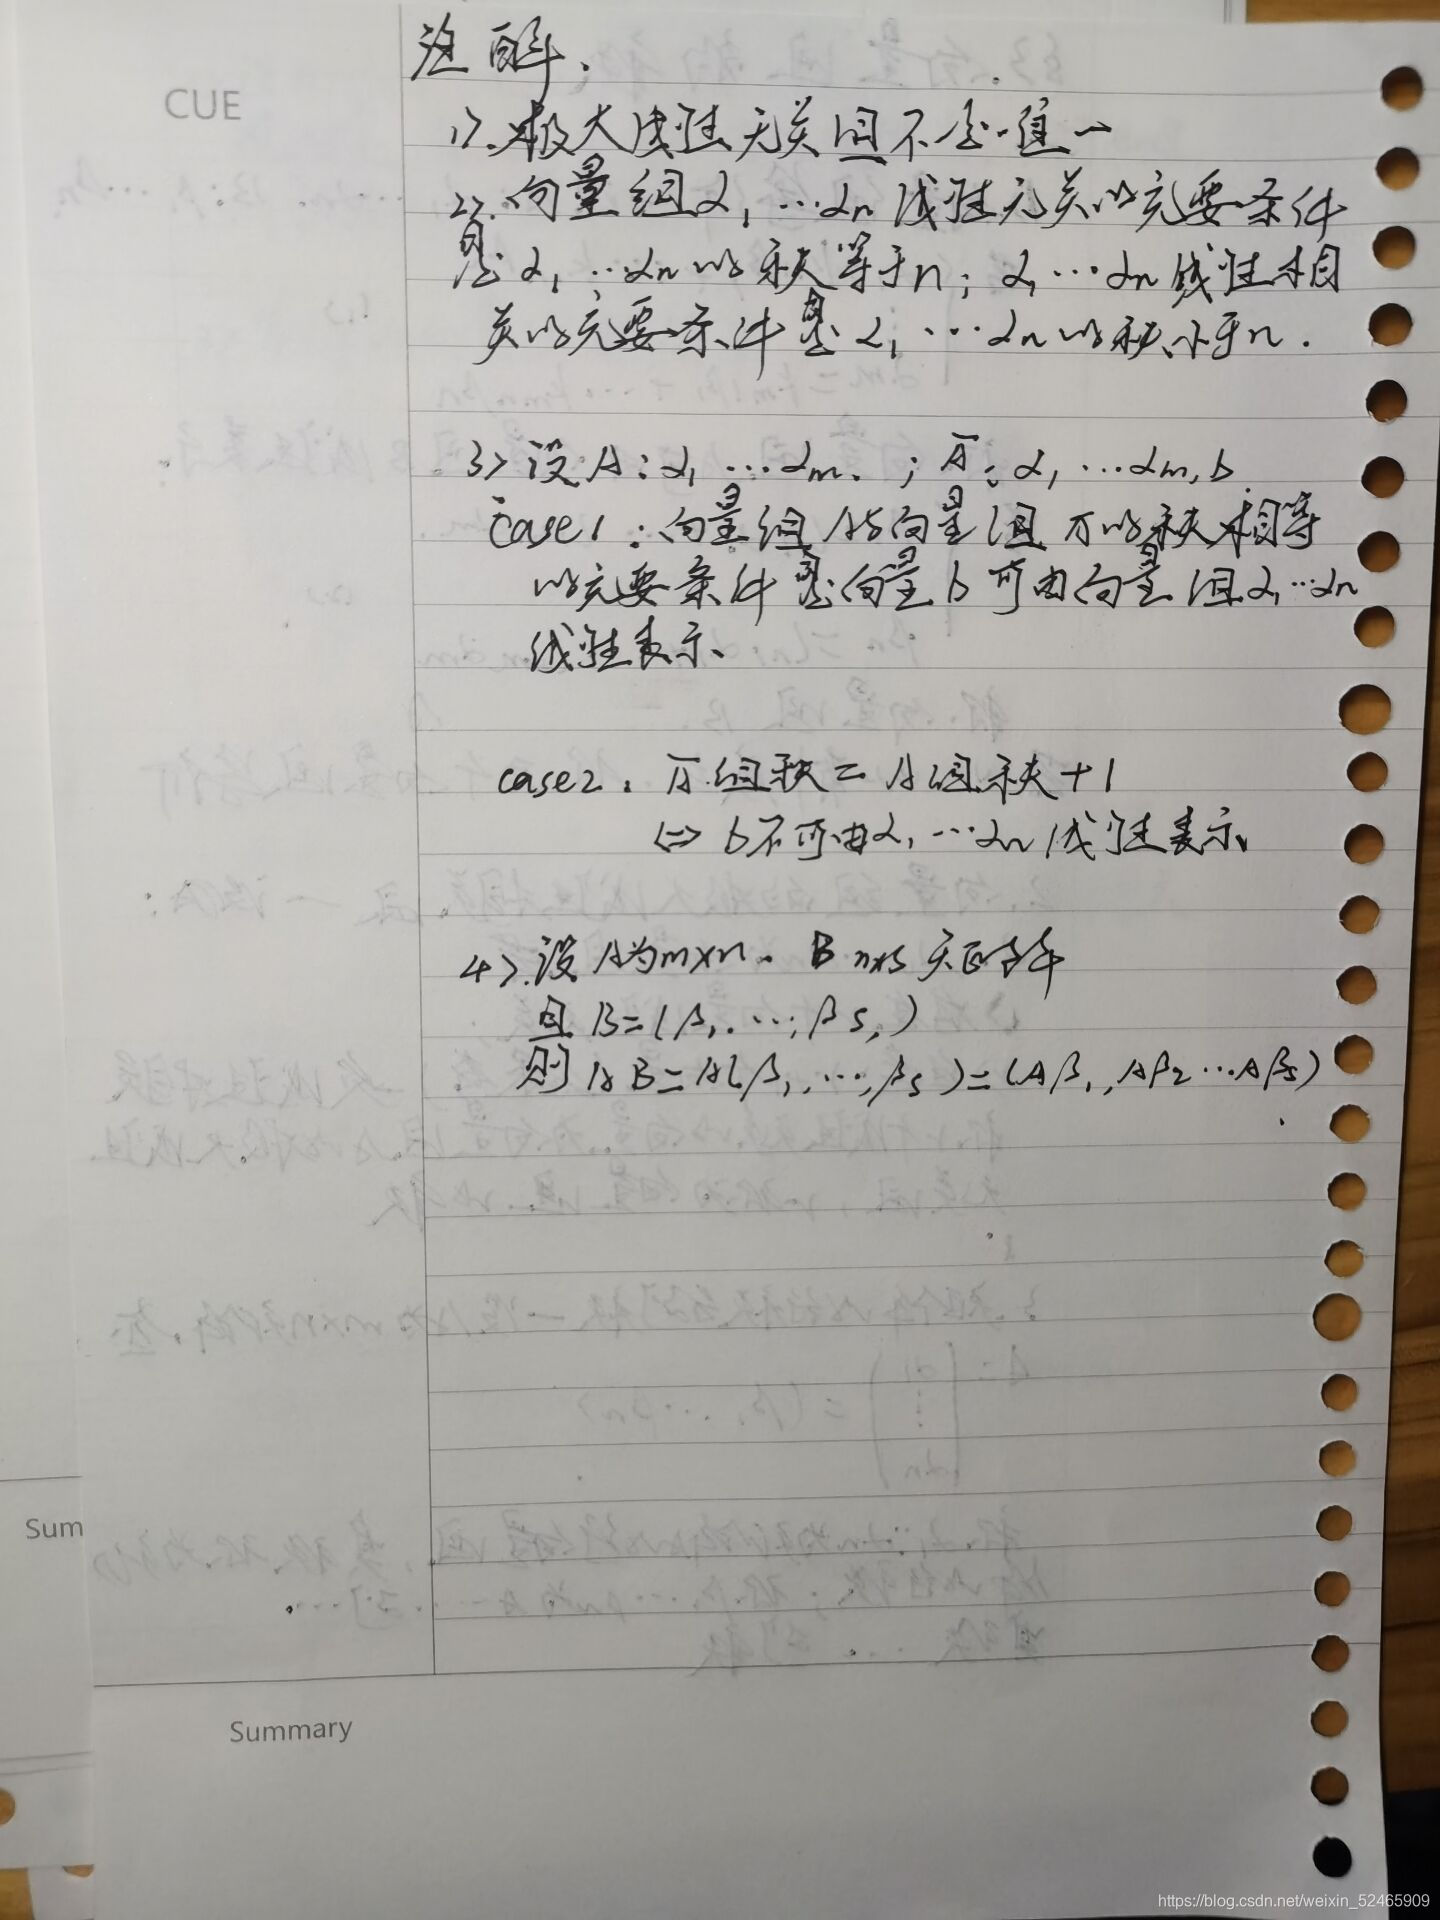 注解.
CUE
1>.极大线性无关组不是唯一
2>.向量组α1…αn线性无关的充要条件
是α1…αn的秩等于n;α1…αn线性相
关的充要条件是α1…αn的秩小于n.
3>设A:α1…αm.;Ā:α1…αm,b
case1:向量组A与向量组Ā的秩相等
的充要条件是向量b可由向量组α1…αn
线性表示、
case2.Ā组秩=A组秩+1
⇔b不可由α1…αn线性表示、
4>.设A为m×n.B n×s矩阵
且B=(β1.…,βs,)
则AB=A(β1,…,βs)=(Aβ1,Aβ2…Aβs)
Sum
Summary
https://blog.csdn.net/weixin_52465909